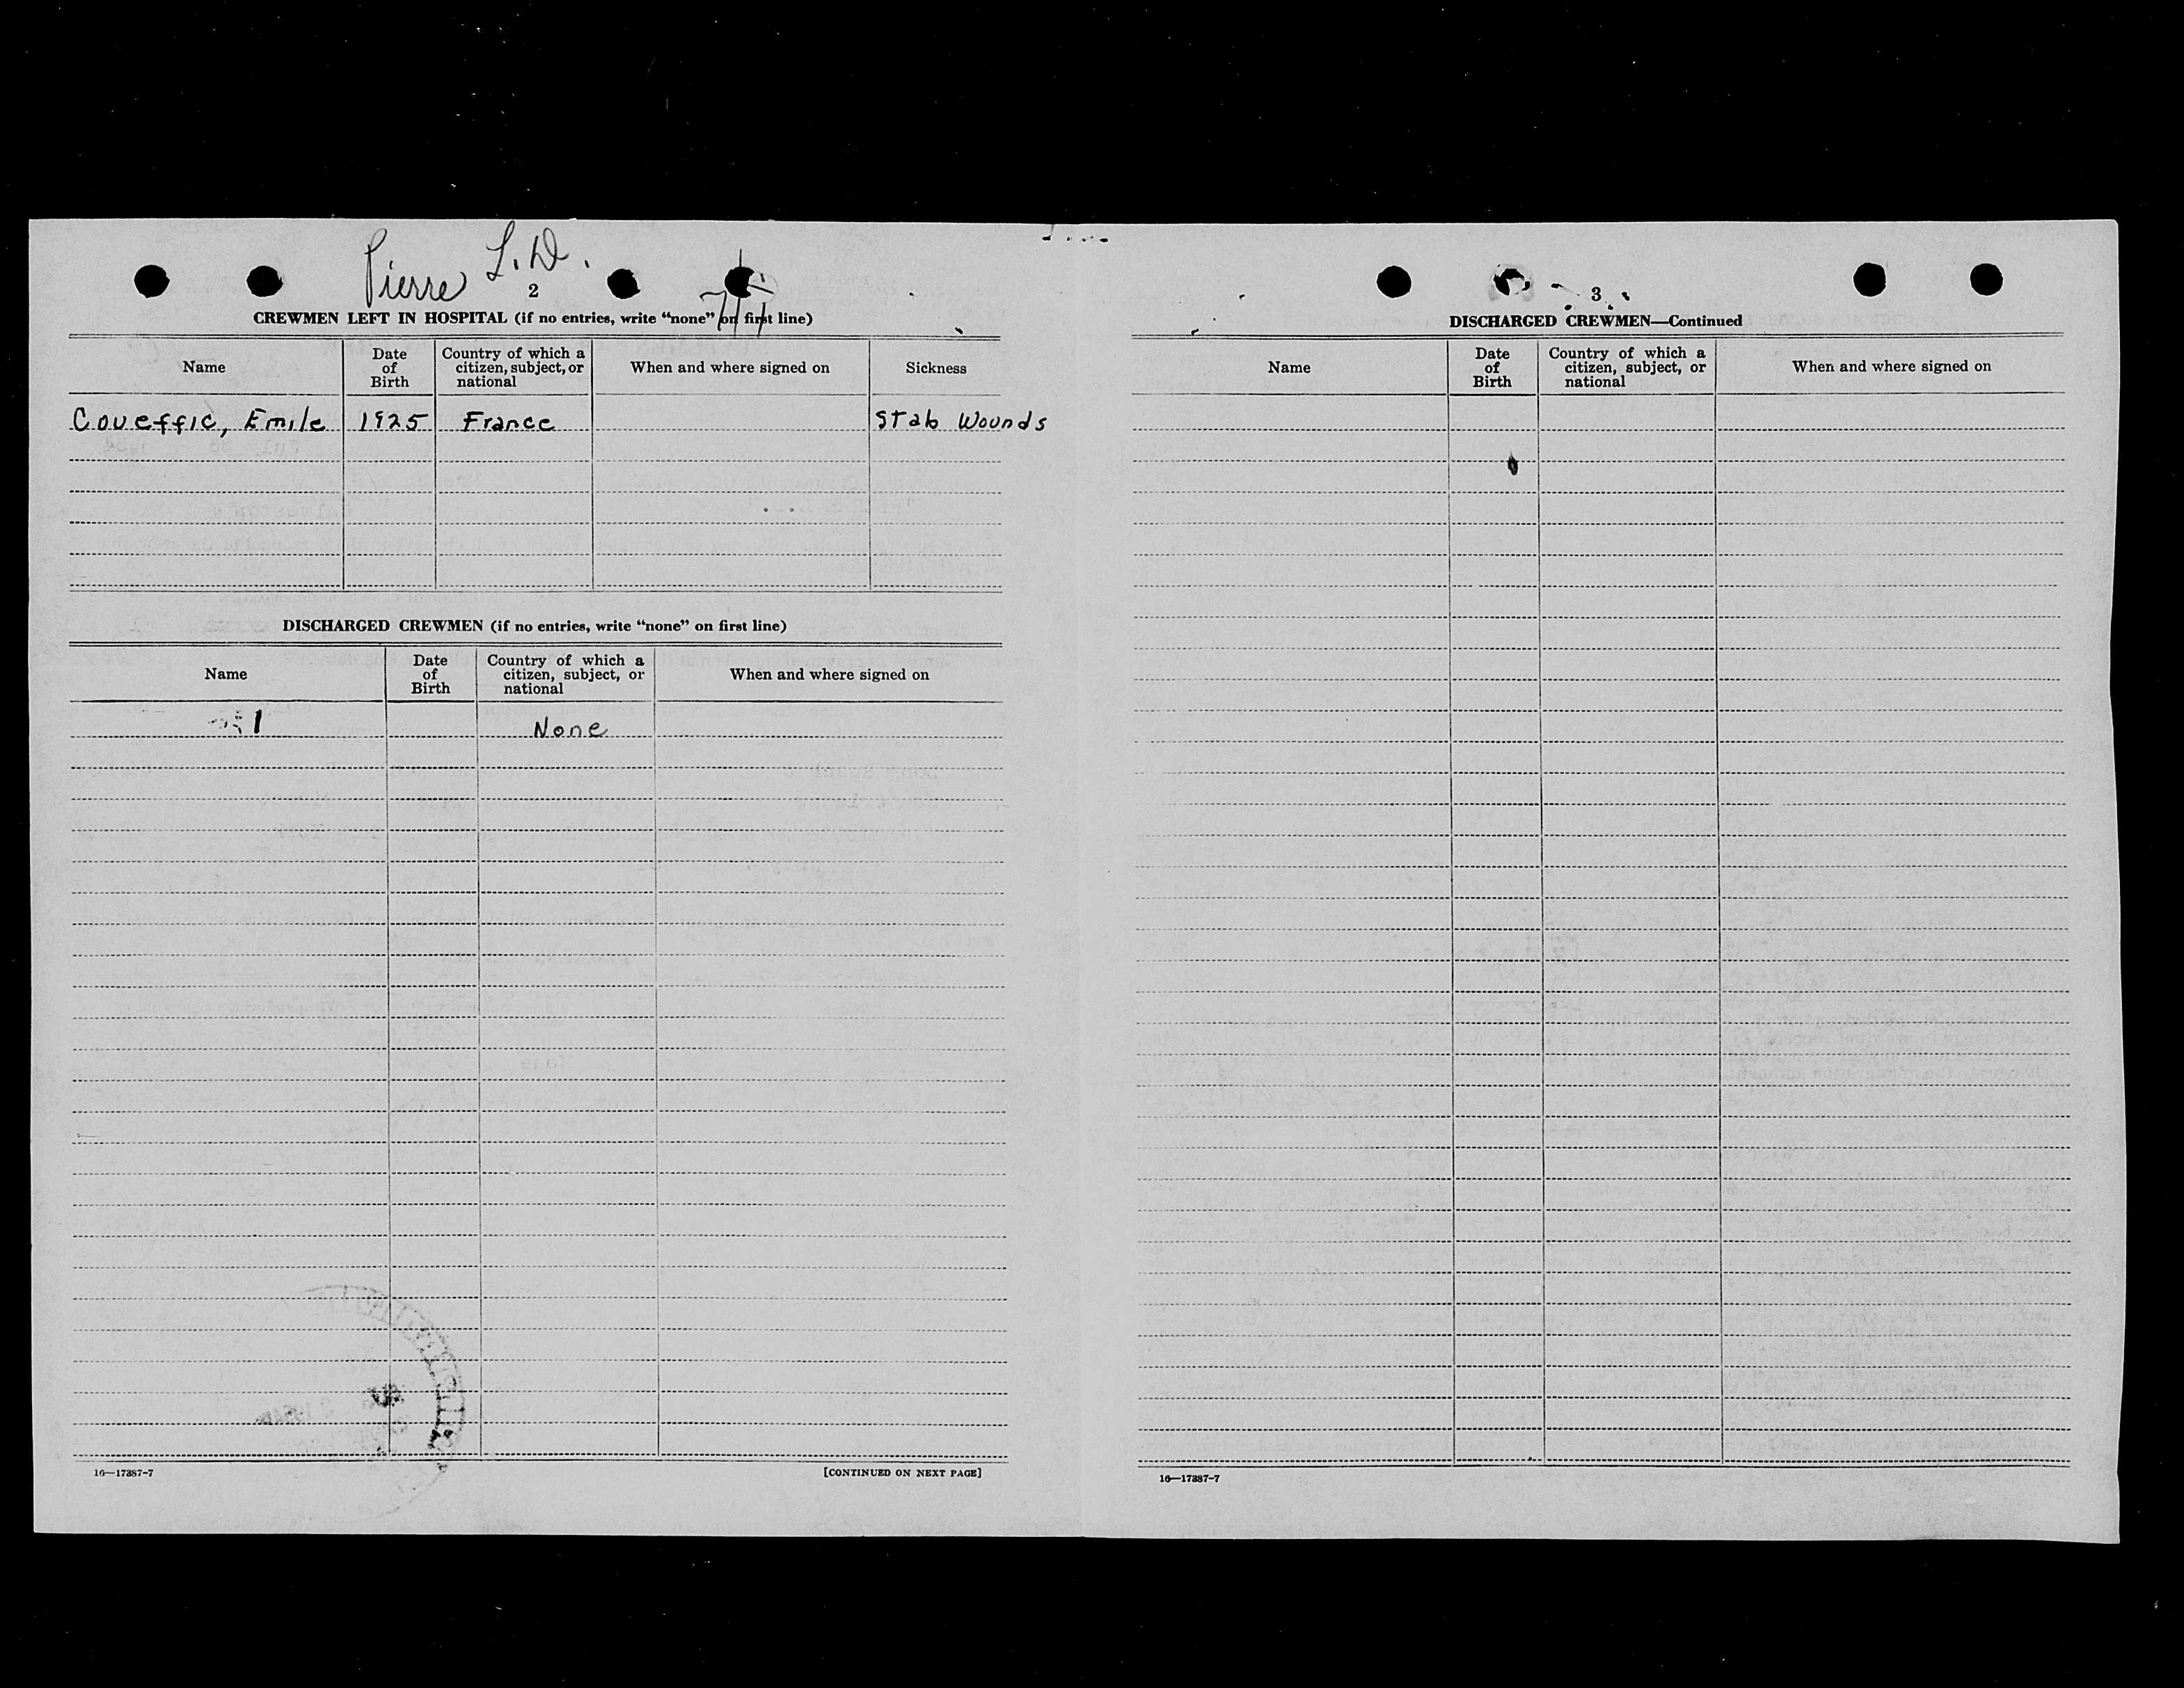 Pierre L. D.
2
CREWMEN LEFT IN HOSPITAL (if no entries, write “none” on first line)
Name
Date of Birth
Country of which a citizen, subject, or national
When and where signed on
Sickness
Coueffic, Emile 1925 France Stab Wounds
DISCHARGED CREWMEN (if no entries, write “none” on first line)
Name
Date of Birth
Country of which a citizen, subject, or national
When and where signed on
None
16—17387-7
[CONTINUED ON NEXT PAGE]
3
DISCHARGED CREWMEN—Continued
Name
Date of Birth
Country of which a citizen, subject, or national
When and where signed on
16—17387-7